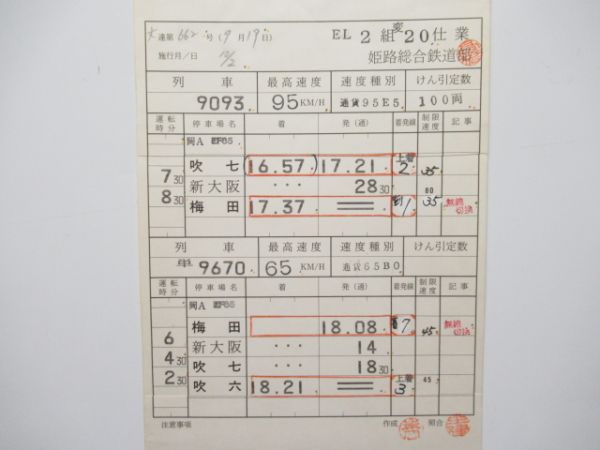 大達第662号(9月19日) EL 2組変20仕業
施行月/日 12/2 姫路総合鉄道部
列車 最高速度 速度種別 けん引定数
9093 95KM/H 通貨95E5 100両
運転時分 停車場名 着 発(通) 着発線 制限速度 記事
岡A EF65
吹七 (16.57) 17.21 上着2 35
7 30 新大阪 ・・・ 28 30 60
8 30 梅田 17.37 == 到1 35 無線切換
列車 最高速度 速度種別 けん引定数
単9670 65KM/H 通貨65B0
運転時分 停車場名 着 発(通) 着発線 制限速度 記事
岡A EF65
梅田 18.08 7 45 無線切換
6 新大阪 ・・・ 14
4 30 吹七 ・・・ 18 30
2 30 吹六 18.21 == 上着3 45
注意事項 作成 照合